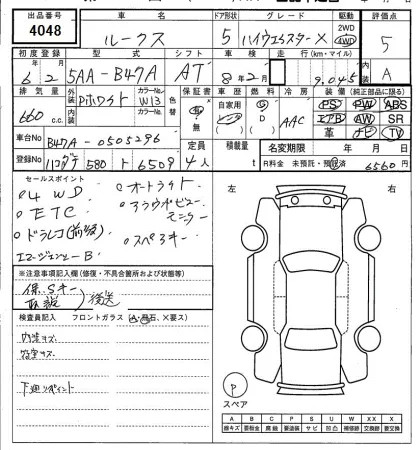 出品番号 車名 ドア形状 グレード 駆動 評価点
4048 ルークス 5 ハイウェイスターX 2WD 4WD 5
初度登録 型式 シフト 車検 走行(km・マイル) 内装
6年2月 5AA-B47A AT 8年2月 9,045 A
排気量 外装 カラーNo. 色替 保証書 車歴 燃料 冷房 装備(純正部品に限る)
660c.c. Pホワイト W13 有・無 自家用 レンタ G D AAC PS PW ABS
エアB AW SR
革 ナビ TV
車台No B47A-0505296 定員 積載量 名変期限 年 月 日
登録No ハコダテ 580 ト 6509 4人 t R料金 未預託・預託済 6560円
セールスポイント
○4WD ○オートライト
○ETC ○アラウンドビューモニター
○ドラレコ(前後) ○スペアキー
エマージェンシーB
※注意事項記入欄(修復・不具合箇所および状態等)
保、Sキー
取説 後送
検査員記入 フロントガラス(A・飛石、X要ス)
内装キズ
下廻りペイント
左 右
P
スペア
A B C P S U W X XX
線キズ 要板金 腐蝕 要塗装 サビ 凹凸 補修跡 交換跡 要交換